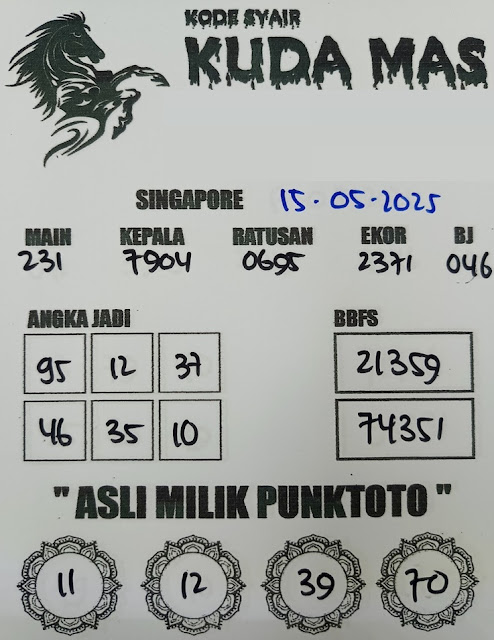 KODE SYAIR
KUDA MAS
SINGAPORE 15-05-2025
MAIN KEPALA RATUSAN EKOR BJ
231 7904 0695 2371 046
ANGKA JADI BBFS
95 12 37 21359
46 35 10 74351
" ASLI MILIK PUNKTOTO "
11 12 39 70